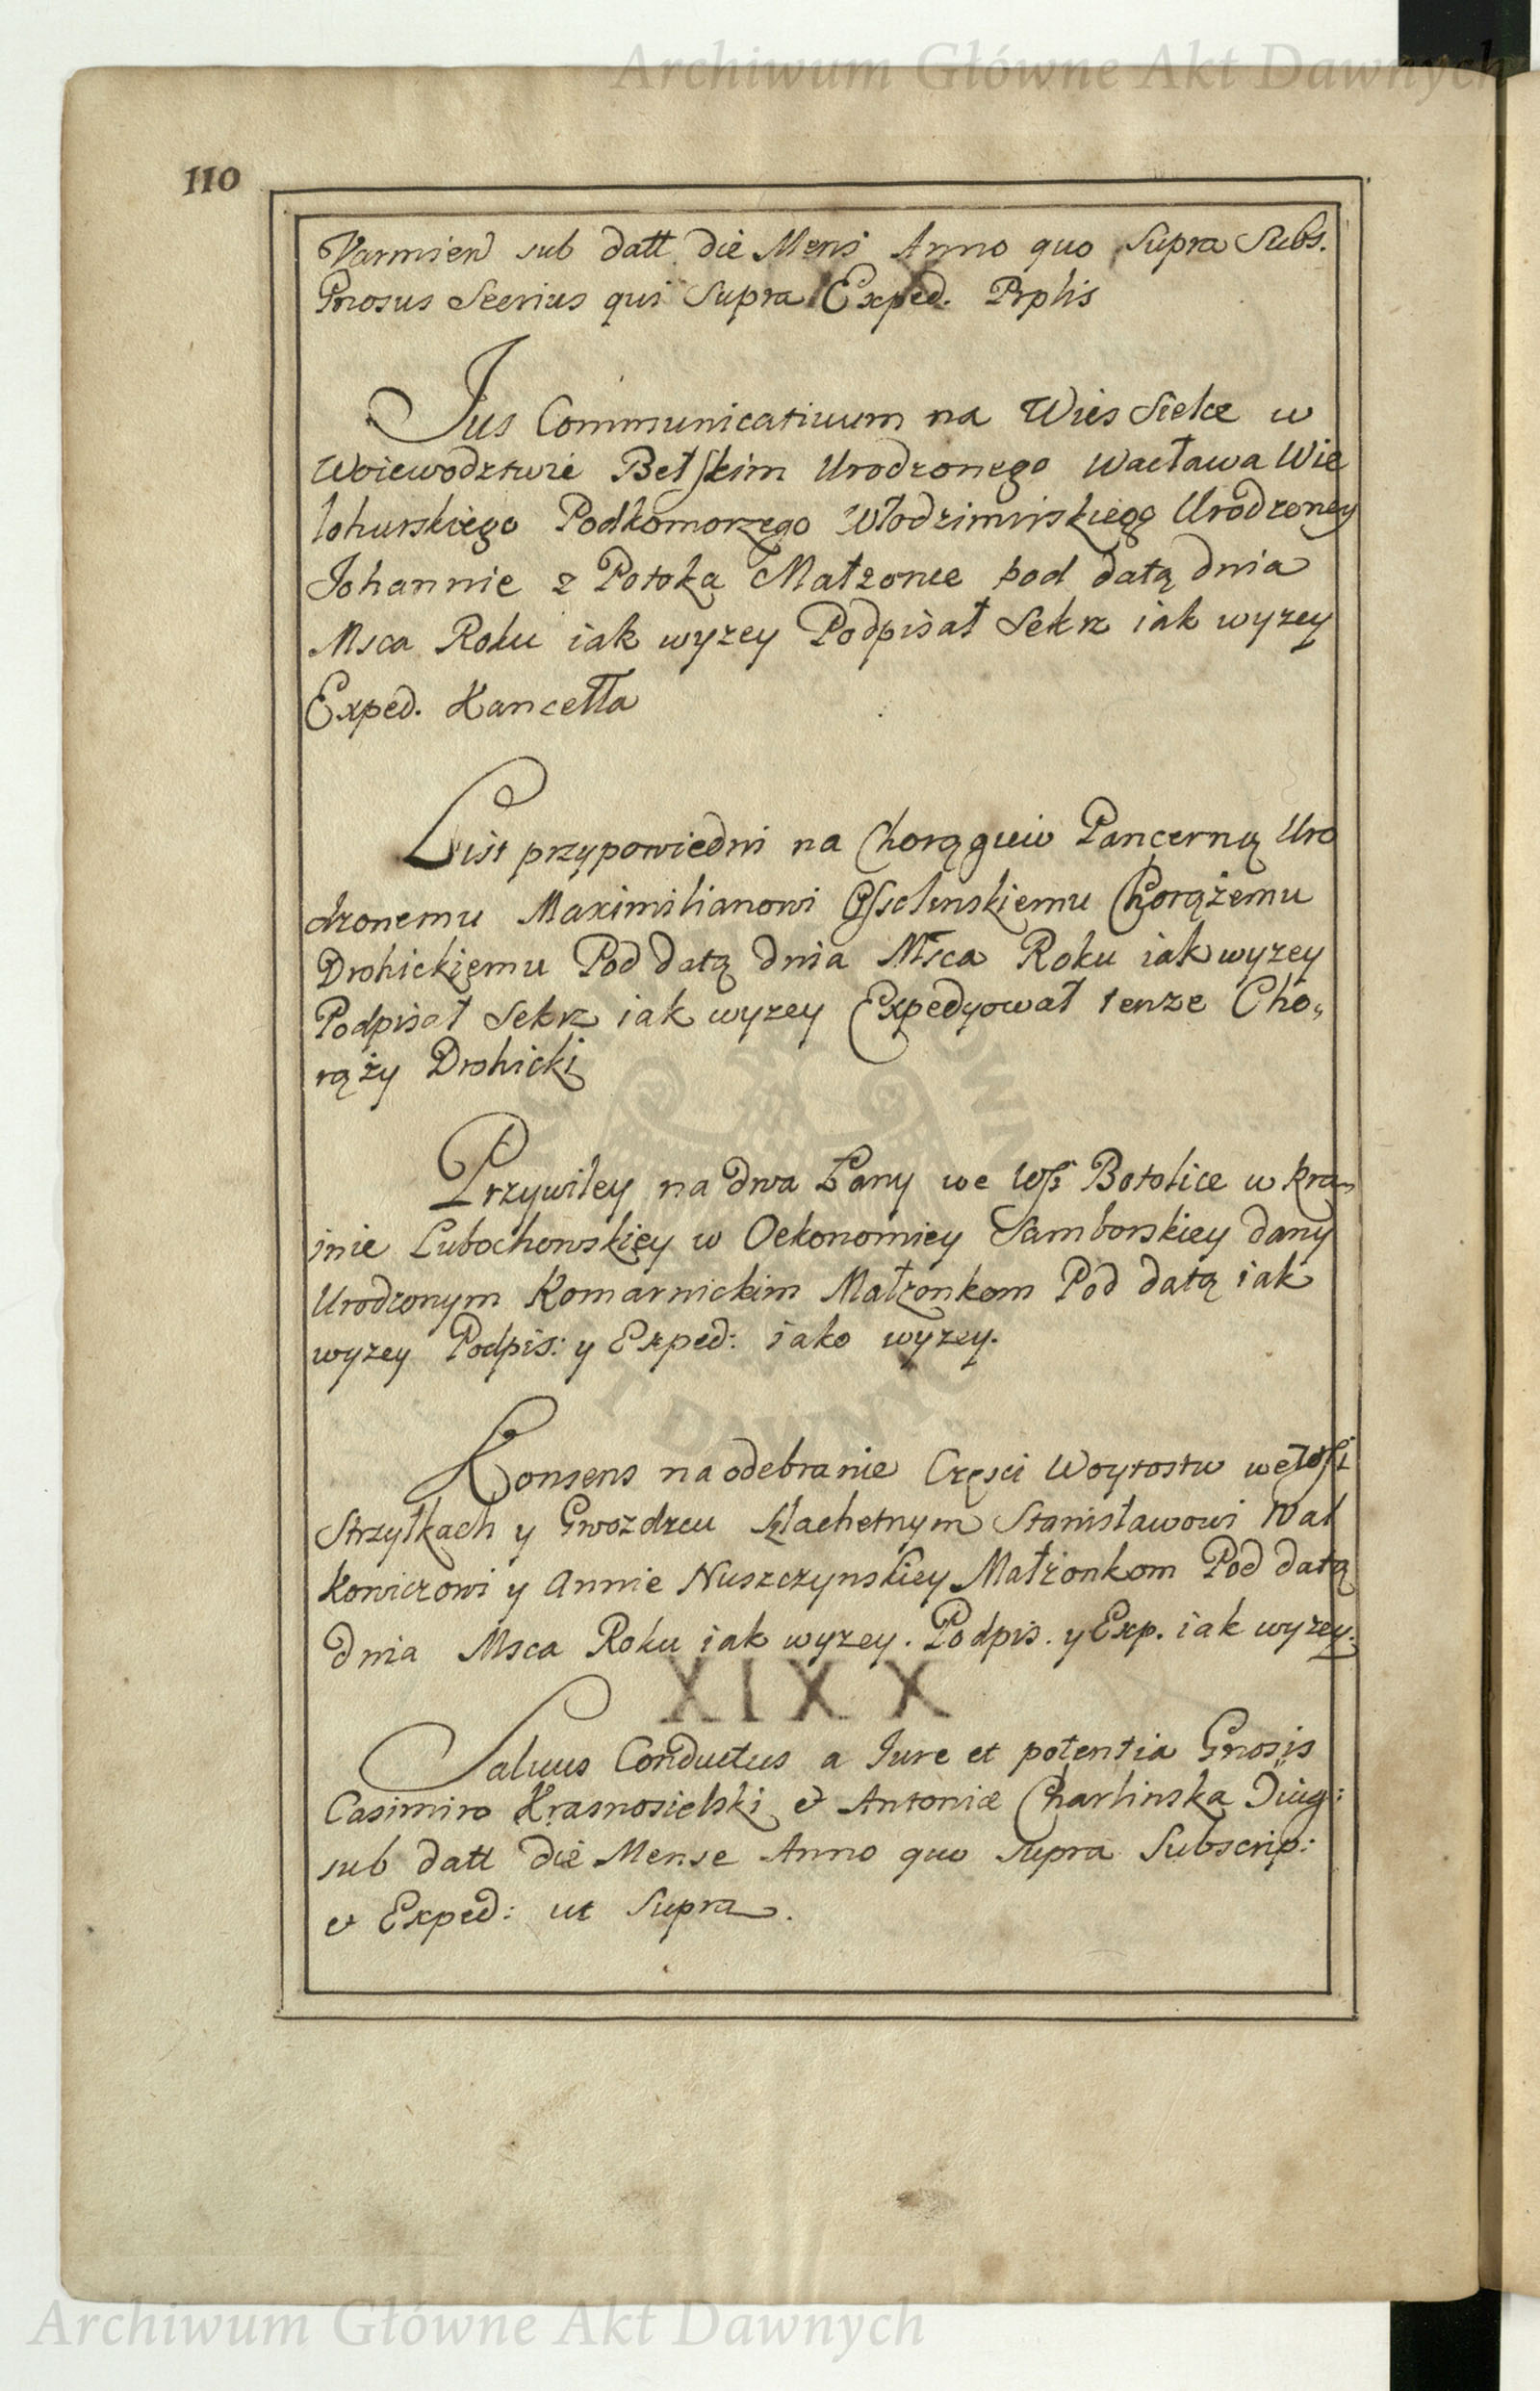 Archiwum Główne Akt Dawnych
110
Varmien sub datt die Mens Anno quo Supra Subs.
Gnosus Secrius qui Supra Exped. Prplis
Jus Communicatiuum na Wies Sielce w
Woiewodztwie Bełskim Urodzonego Wacława Wie
lohurskiego Podkomorzego Włodzimirskiego Urodzoney
Johannie z Potoka Małzonce pod datą dnia
Msca Roku iak wyzey Podpisał Sekrz iak wyzey
Exped. Kancella
List przypowiedni na Chorągwiw Pancerną Uro
dzonemu Maximilianowi Ossolinskiemu Chorążemu
Drohickiemu Pod datą dnia Msca Roku iak wyzey
Podpisał Sekrz iak wyzey Expedyował tenze Cho„
rąży Drohicki
Przywiley na dwa Łany we Wsi Botolice w kra„
inie Lubochowskiey w Oekonomiey Samborskiey dany
Urodzonym Komarnickim Małzonkom Pod datą iak
wyzey Podpis: y Exped: iako wyzey.
Konsens na odebranie Częsci Woytostw we Wsi
Strzyłkach y Gwozdzcu Szlachetnym Stanisławowi Wal
kowiczowi y Annie Nuszczynskiey Małżonkom Pod datą
dnia Msca Roku iak wyzey. Podpis. y Exp. iak wyzey.
XIXX
Saluus Conductus a Jure et potentia Gnosis
Casimiro Krasnosielski & Antonia Charlinska Jug:
sub datt die Mense Anno quo supra Subscrip:
& Exped: ut Supra.
Archiwum Główne Akt Dawnych